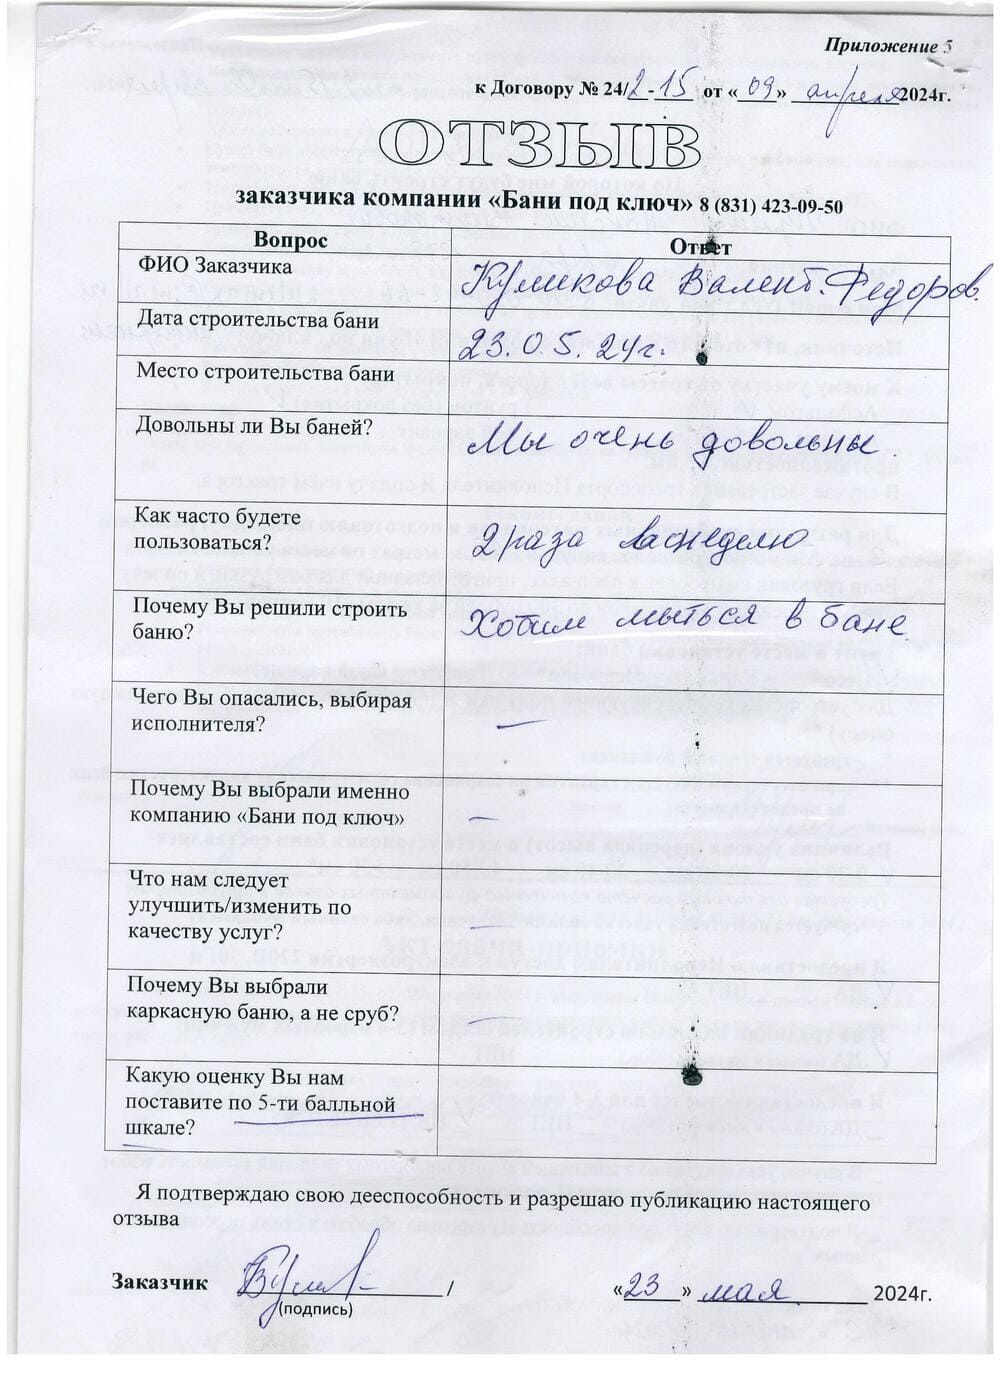 Приложение 5
к Договору № 24/2-15 от «09» апреля 2024г.
ОТЗЫВ
заказчика компании «Бани под ключ» 8 (831) 423-09-50
Вопрос Ответ
ФИО Заказчика Куликова Валент. Федоров.
Дата строительства бани 23.05.24г.
Место строительства бани
Довольны ли Вы баней? Мы очень довольны
Как часто будете
пользоваться? 2 раза в неделю
Почему Вы решили строить
баню? Хотим мыться в бане
Чего Вы опасались, выбирая
исполнителя? —
Почему Вы выбрали именно
компанию «Бани под ключ» —
Что нам следует
улучшить/изменить по
качеству услуг? —
Почему Вы выбрали
каркасную баню, а не сруб? —
Какую оценку Вы нам
поставите по 5-ти балльной
шкале?
Я подтверждаю свою дееспособность и разрешаю публикацию настоящего
отзыва
Заказчик / «23» мая 2024г.
(подпись)